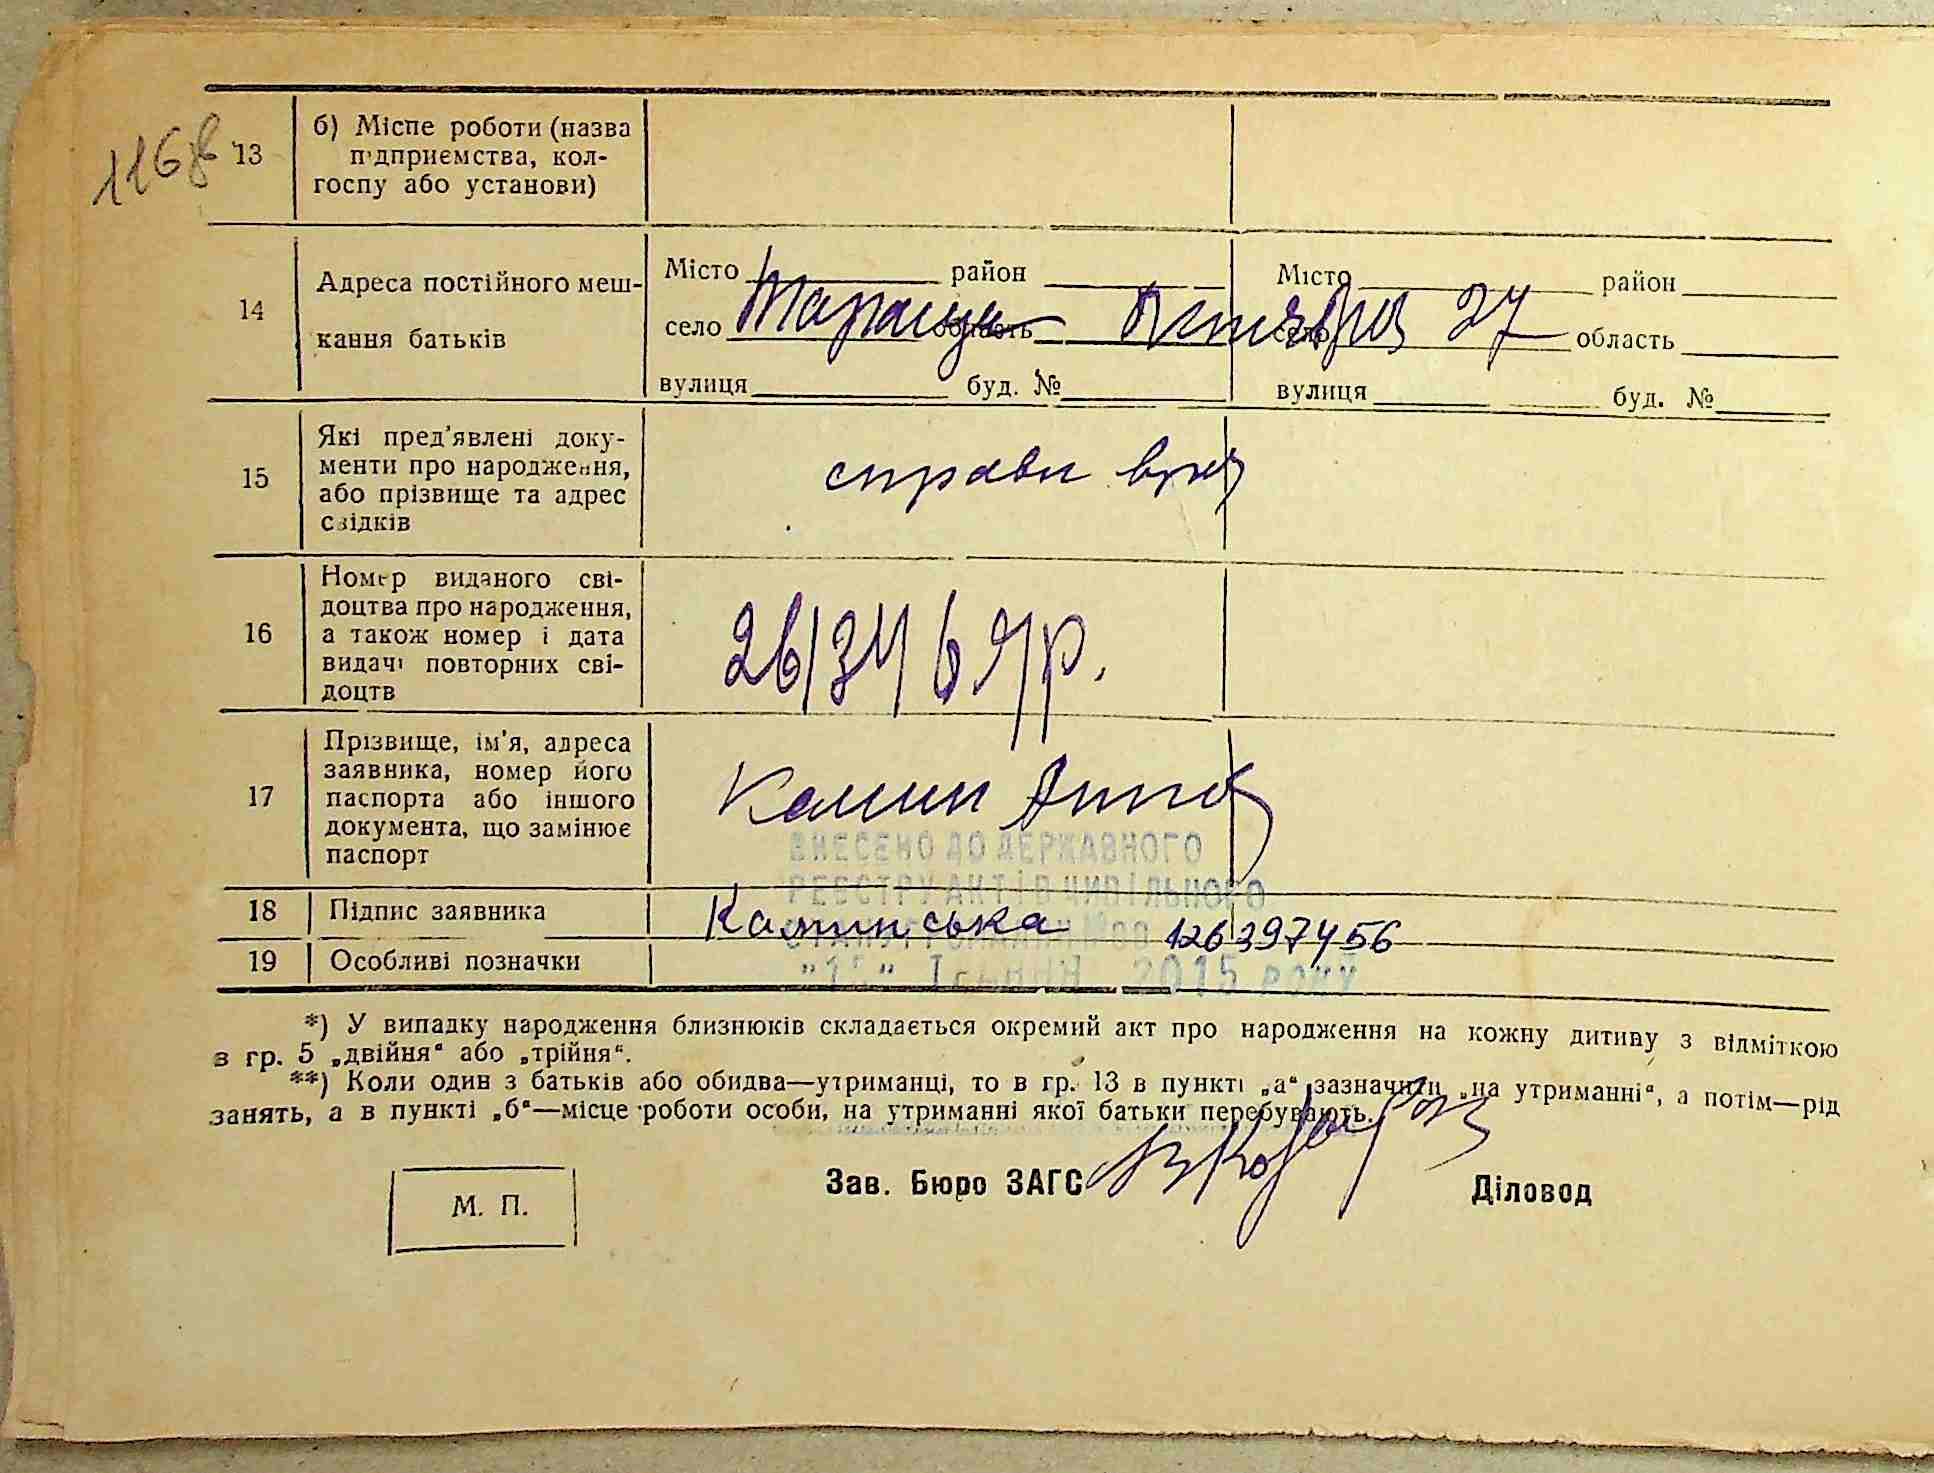 116 зв
13 б) Місце роботи (назва
підприємства, кол-
госпу або установи)
14 Адреса постійного меш-
кання батьків
Місто район
село Тараща область
вулиця буд. №
Місто район
село 27 область
вулиця буд. №
15 Які пред'явлені доку-
менти про народження,
або прізвище та адрес
свідків
справи
16 Номер виданого сві-
доцтва про народження,
а також номер і дата
видачі повторних сві-
доцтв
17 Прізвище, ім'я, адреса
заявника, номер його
паспорта або іншого
документа, що замінює
паспорт
ВНЕСЕНО ДО ДЕРЖАВНОГО
РЕЄСТРУ АКТІВ ЦИВІЛЬНОГО
18 Підпис заявника Каминська
126397456
19 Особливі позначки
2015 РОКУ
*) У випадку народження близнюків складається окремий акт про народження на кожну дитину з відміткою
в гр. 5 „двійня“ або „трійня“.
**) Коли один з батьків або обидва—утриманці, то в гр. 13 в пункті „а“ зазначити „на утриманні“, а потім—рід
занять, а в пункті „б“—місце роботи особи, на утриманні якої батьки перебувають.
М. П.
Зав. Бюро ЗАГС
Діловод